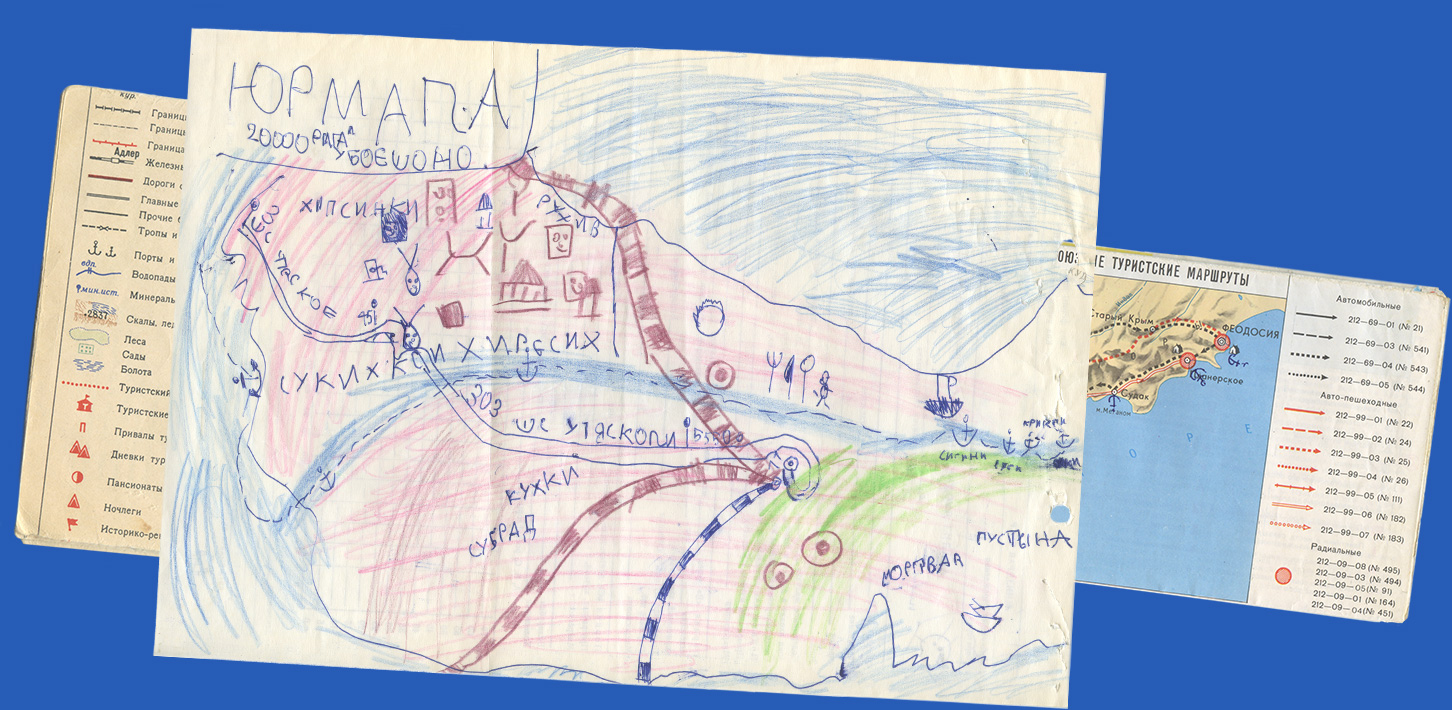 кур.
Границы
Границы
Граница
Адлер
Железн
Дороги с
Главные
Прочие
Тропы и
Порты и
вдп.
Водопады
мин.ист.
Минераль
•2837
Скалы, лед
Леса
Сады
Болота
Туристский
Туристские
Привалы ту
Дневки тур
Пансионаты
Ночлеги
Историко-рев
ЮРМАПА
20000
УБОЕШОНО
ХИПСИНКИ
РУХИВ
СУКИХККИ ХИРЕСИХ
303
ШС УТЯСКОПИ
КУХКИ
СУБРАД
МОРГРВАЯ
ПУСТЫНА
СИГИНИ
ОЮЗНЫЕ ТУРИСТСКИЕ МАРШРУТЫ
Старый Крым
ФЕОДОСИЯ
Судак
м.Меганом
О Р Е
Автомобильные
212—69—01 (№ 21)
212—69—03 (№ 541)
212—69—04 (№ 543)
212—69—05 (№ 544)
Авто-пешеходные
212—99—01 (№ 22)
212—99—02 (№ 24)
212—99—03 (№ 25)
212—99—04 (№ 26)
212—99—05 (№ 111)
212—99—06 (№ 182)
212—99—07 (№ 183)
Радиальные
212—09—08 (№ 495)
212—09—03 (№ 494)
212—09—05 (№ 91)
212—09—01 (№ 164)
212—09—04 (№ 451)